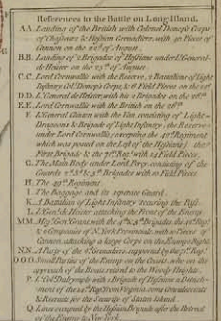 References to the Battle on Long Island.
A.A. Landing of the British with Colonel Donop's Corps
of Chasseurs & Hessian Grenadiers with 40 Pieces of
Cannon on the 22d of August.
B.B. Landing of 2 Brigades of Hessians under Lt. General
de Heister on the 25th of August.
C.C. Lord Cornwallis with the Reserve, 2 Battalions of Light
Infantry & Col. Donop's Corps & 6 Field Pieces on the 22d
D.D. Lt. General de Heister with his 2 Brigades on the 26th
E.E. Lord Cornwallis with the British on the 26th
F. Lt. General Clinton with the Van consisting of Light
Dragoons & Brigade of Light Infantry, the Reserve
under Lord Cornwallis (excepting the 42d Regiment
which was posted on the Left of the Hessians) the
First Brigade & the 71st Regt with 14 Field Pieces.
G. The Main Body under Lord Percy consisting of the
Guards & 2d 3d & 5th Brigades with 10 Field Pieces
H. The 49th Regiment
I. The Baggage and its separate Guard.
K. A Battalion of Light Infantry securing the Pass.
L. Lt. Genl. de Heister attacking the Front of the Enemy
M.M. Maj. Genl. Grant with the 4th & 6th Brigades the 42d Regt.
& 2 Companies of N. York Provincials with 10 Pieces of
Cannon attacking a large Corps on the Enemy's Right
N.N. a Party of the 4 Grenadiers supported by the 71st Regt.
O.O.O. Small Parties of the Enemy on the Coast, who on the
approach of the Boats retired to the Woody Heights.
P. Lt. Col. Dalrymple with 1 Brigade of Hessians a Detachment
of the 14th Regt. from Virginia some Convalescents
& Recruits for the Security of Staten Island.
Q. Lines occupied by the Hessian Brigade after the Retreat
of the Enemy to New York.